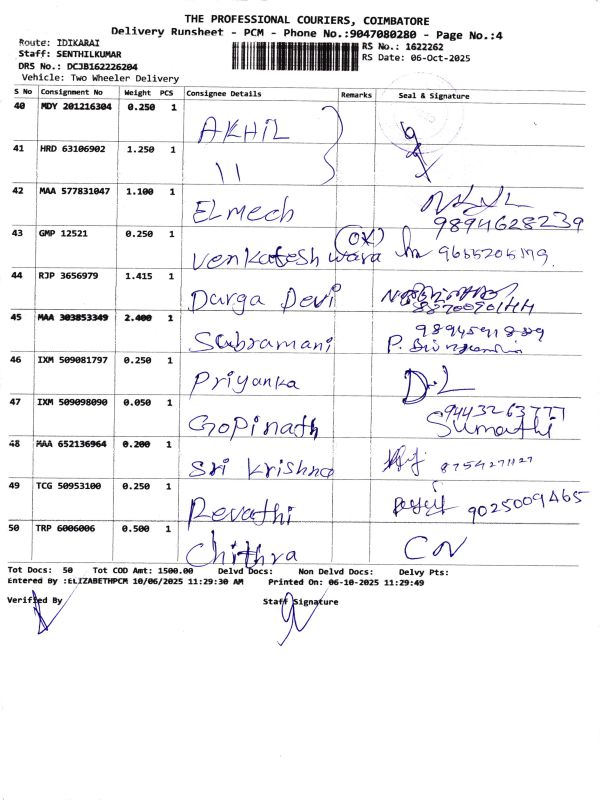 THE PROFESSIONAL COURIERS, COIMBATORE
Delivery Runsheet - PCM - Phone No.:9047080280 - Page No.:4
Route: IDIKARAI
RS No.: 1622262
Staff: SENTHILKUMAR
RS Date: 06-Oct-2025
DRS No.: DCJB162226204
Vehicle: Two Wheeler Delivery
S No Consignment No Weight PCS Consignee Details Remarks Seal & Signature
40 MDY 201216304 0.250 1 AKHIL
41 HRD 63106902 1.250 1 11
42 MAA 577831047 1.100 1 ELmech 9894628239
43 GMP 12521 0.250 1 Venkatesh wara
44 RJP 3656979 1.415 1 Durga Devi
45 MAA 303853349 2.400 1 Subramani
46 IXM 509081797 0.250 1 Priyanka
47 IXM 509098090 0.050 1 Gopinath 9443263777 Sumathi
48 MAA 652136964 0.200 1 Sri Krishna 8754271127
49 TCG 50953100 0.250 1 Revathi 9025009465
50 TRP 6006006 0.500 1 Chithra
Tot Docs: 50 Tot COD Amt: 1500.00 Delvd Docs: Non Delvd Docs: Delvy Pts:
Entered By :ELIZABETHPCM 10/06/2025 11:29:30 AM Printed On: 06-10-2025 11:29:49
Verified By Staff Signature